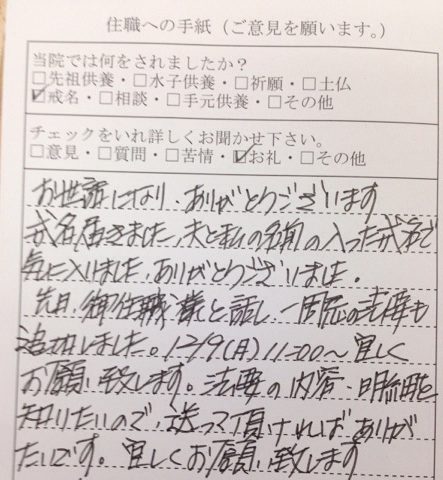 住職への手紙（ご意見を願います。）
当院では何をされましたか？
□先祖供養・□水子供養・□祈願・□土仏
☑戒名・□相談・□手元供養・□その他
チェックをいれ詳しくお聞かせ下さい。
□意見・□質問・□苦情・☑お礼・□その他
お世話になり、ありがとうございます
戒名届きました、夫と私の名前の入った戒名で
気に入りました、ありがとうございました。
先日、御住職様と話し、一周忌の法要も
追加しました。12/9(月)11:00〜宜しく
お願い致します。法要の内容・明細を
知りたいので、送って頂ければありが
たいです。宜しくお願い致します